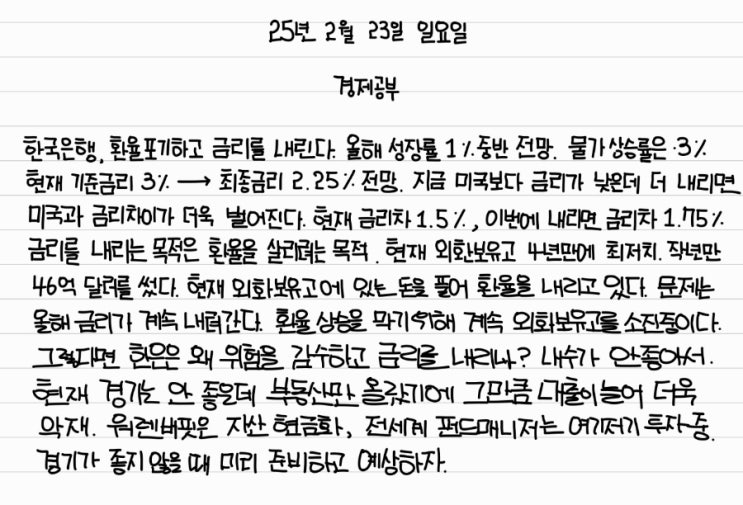 25년 2월 23일 일요일
경제공부
한국은행, 환율포기하고 금리를 내린다. 올해 성장률 1%중반 전망. 물가상승률은 3%
현재 기준금리 3% → 최종금리 2.25% 전망. 지금 미국보다 금리가 낮은데 더 내리면
미국과 금리차이가 더욱 벌어진다. 현재 금리차 1.5%, 이번에 내리면 금리차 1.75%
금리를 내리는 목적은 환율을 살리려는 목적. 현재 외화보유고 4년만에 최저치. 작년만
46억 달러를 썼다. 현재 외화보유고에 있는 돈을 풀어 환율을 내리고 있다. 문제는
올해 금리가 계속 내려간다. 환율 상승을 막기위해 계속 외화보유고를 소진중이다.
그렇다면 한은은 왜 위험을 감수하고 금리를 내리나? 내수가 안좋아서.
현재 경기는 안 좋은데 부동산만 올랐기에 그만큼 대출이 늘어 더욱
악재. 워렌버핏은 자산 현금화, 전세계 펀드매니저는 여기저기 투자중.
경기가 좋지 않을 때 미리 준비하고 예상하자.